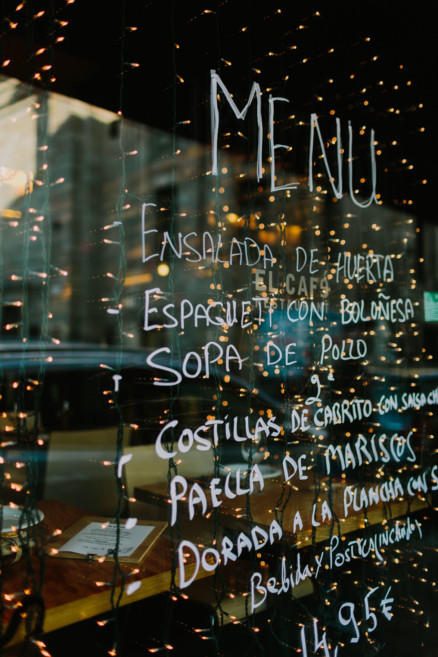 MENU
ENSALADA DE HUERTA
EL CAFÉ
ESPAGUETI CON BOLOÑESA
SOPA DE POLLO
2º
COSTILLAS DE CABRITO CON SALSA
PAELLA DE MARISCOS
DORADA A LA PLANCHA CON
Bebida y Postre incluido
14,95€